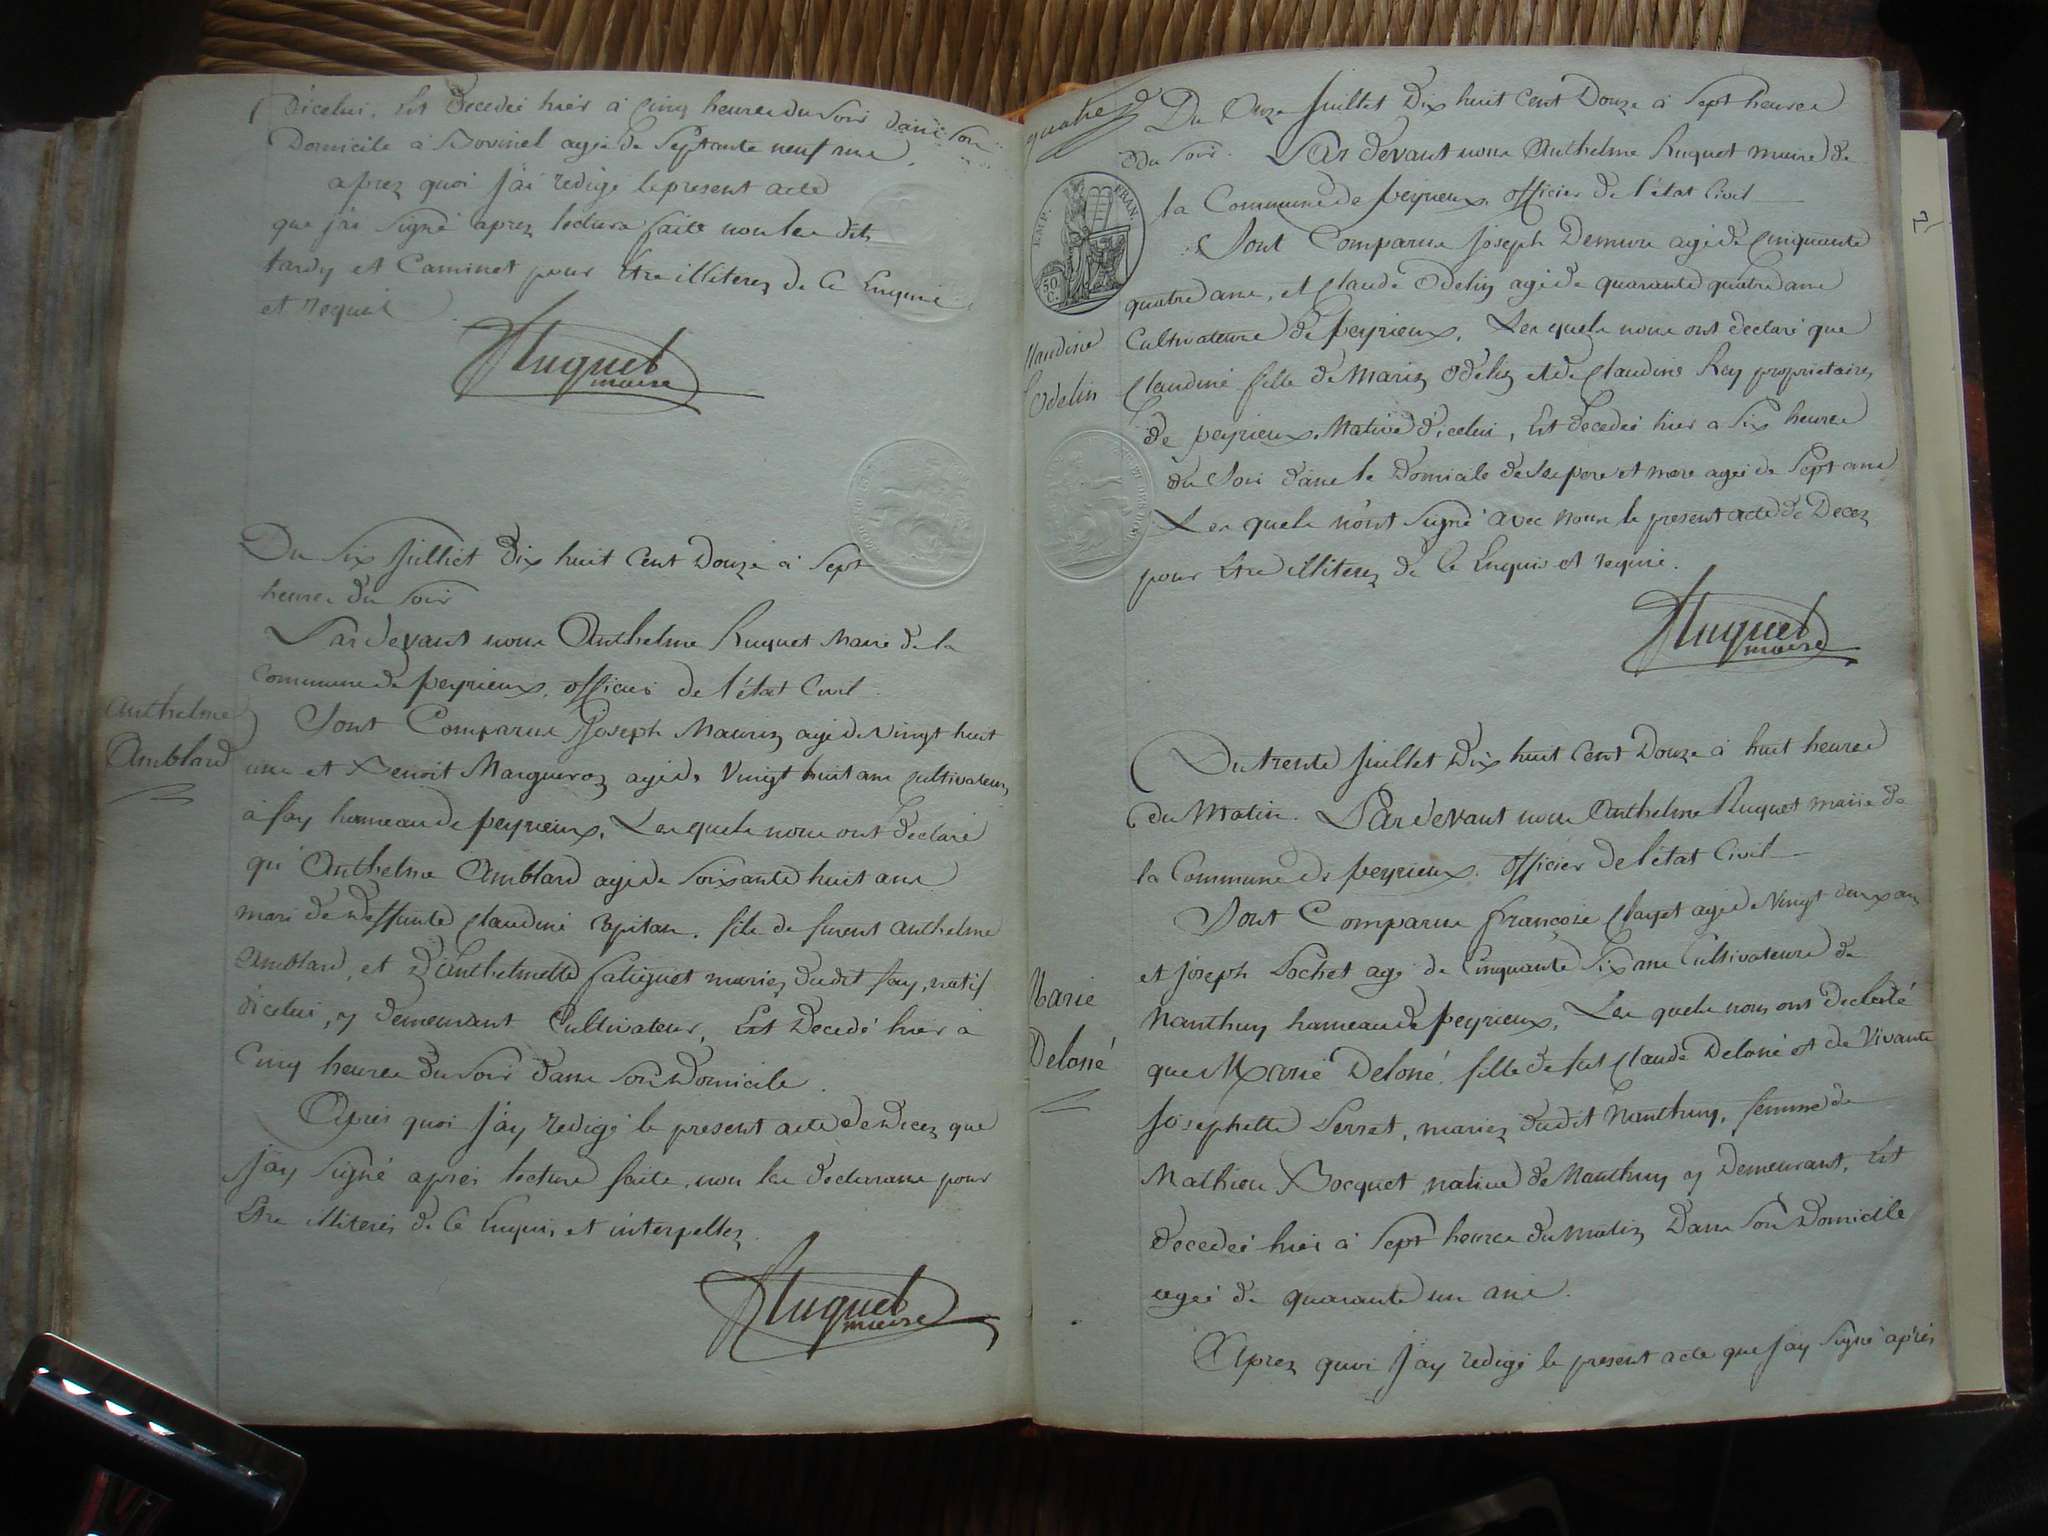 d'icelui, Est decedé hier à Cinq heures du soir dans son
Domicile à agé de Septante neuf ans
après quoi j'ai redigé le present acte
que j'ai signé aprez lecture faite non les dits
tardy et Caminet pour Etre illiterez de Ce Enquis
et requis
Ruquet
maire
Du Six Juilliet dix huit Cent Douze à Sept
heures du Soir
Pardevant nous Anthelme Ruquet Maire de la
Commune de peyrieux, officier de l'état Civil
Anthelme
Amblard
Sont Comparus Joseph Maurin agé de Vingt huit
ans et Benoit Margueroz agé de Vingt huit ans Cultivateurs
à fay hameau de peyrieux, Lesquels nous ont declaré
qu'Anthelme Amblard agé de Soixante huit ans
mari de deffunte Claudine fils de furent Anthelme
Amblard, et d'Anthelmette mariez dudit fay, natif
d'icelui, y demeurant Cultivateur, Est Decedé hier à
Cinq heures du Soir dans Son Domicile.
Aprés quoi j'ay redigé le present acte de Decez que
j'ay Signé aprés lecture faite, non les declarans pour
Etre illiterés de Ce Enquis et interpellez.
Ruquet
maire
quatre
Du Onze Juillet Dix huit Cent Douze à Sept heures
du Soir. Pardevant nous Anthelme Ruquet maire de
EMP. FRAN.
50 C.
la Commune de peyrieux, officier de l'état Civil
Sont Comparus Joseph Demure agé de Cinquante
quatre ans, et Claude Odelin agé de quarante quatre ans
Cultivateurs de peyrieux, Lesquels nous ont declaré que
Claudine
Odelin
Claudine fille de Marin Odelin et de Claudine Rey proprietaires
de peyrieux, Native d'icelui, Est decedée hier à Six heures
du Soir dans le Domicile de Ses pere et mere agée de Sept ans
Lesquels n'ont Signé avec nous le present acte de Decez
pour Etre illiterez de Ce Enquis et requis.
Ruquet
maire
Du trente Juillet Dix huit Cent Douze à huit heures
du Matin. Pardevant nous Anthelme Ruquet maire de
la Commune de peyrieux, Officier de l'état Civil
Sont Comparus françois Clayet agé de Vingt deux ans
et Joseph Pochet agé de Cinquante Six ans Cultivateurs de
Nanthuy hameau de peyrieux, Lesquels nous ont declaré
Marie
Deloné
que Marie Deloné, fille de fut Claude Deloné et de Vivante
Josephette Perret, mariez dudit Nanthuy, femme de
Mathieu Bocquet, native de Nanthuy y Demeurant, Est
decedée hier à Sept heures du Matin Dans Son Domicile
agée de quarante un ans.
Aprez quoi j'ay redigé le present acte que j'ay Signé aprés